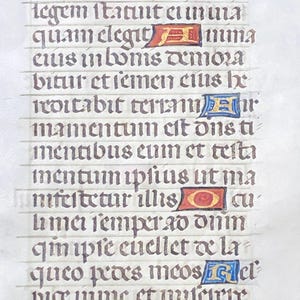 legem statuit ei in via
quam elegit Anima
eius in bonis demora
bitur et semen eius he
reditabit terram Fir
mamentum est dns ti
mentibus eum et testa
mentum ipsius ut ma
nifestetur illis Ocu
li mei semper ad dnm
qm ipse evellet de la
queo pedes meos Res
pice in me et miserere